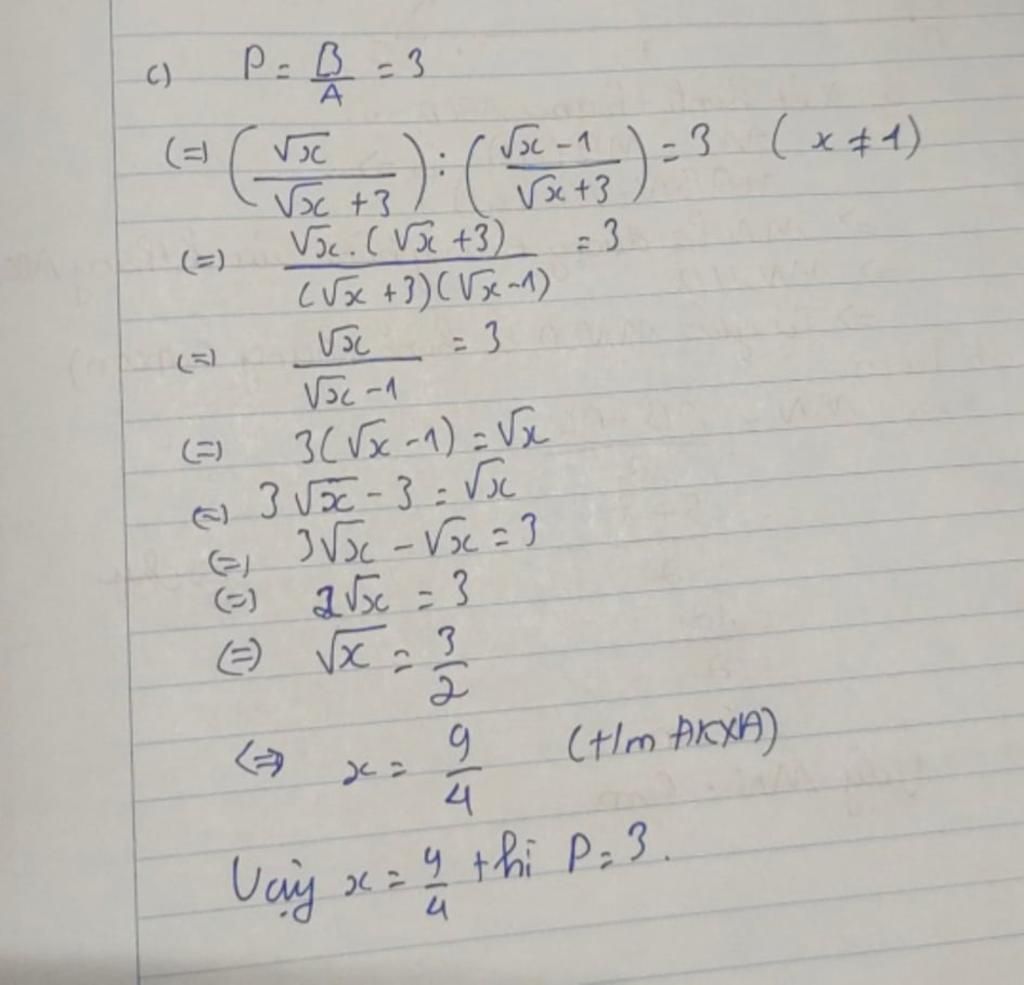 c) P = B/A = 3
(=) (√x / (√x + 3)) : ((√x - 1) / (√x + 3)) = 3 (x ≠ 1)
(=) √x.(√x + 3) / (√x + 3)(√x - 1) = 3
(=) √x / (√x - 1) = 3
(=) 3(√x - 1) = √x
(=) 3√x - 3 = √x
(=) 3√x - √x = 3
(=) 2√x = 3
(=) √x = 3/2
<=> x = 9/4 (t/m ĐKXĐ)
Vậy x = 9/4 thì P = 3.